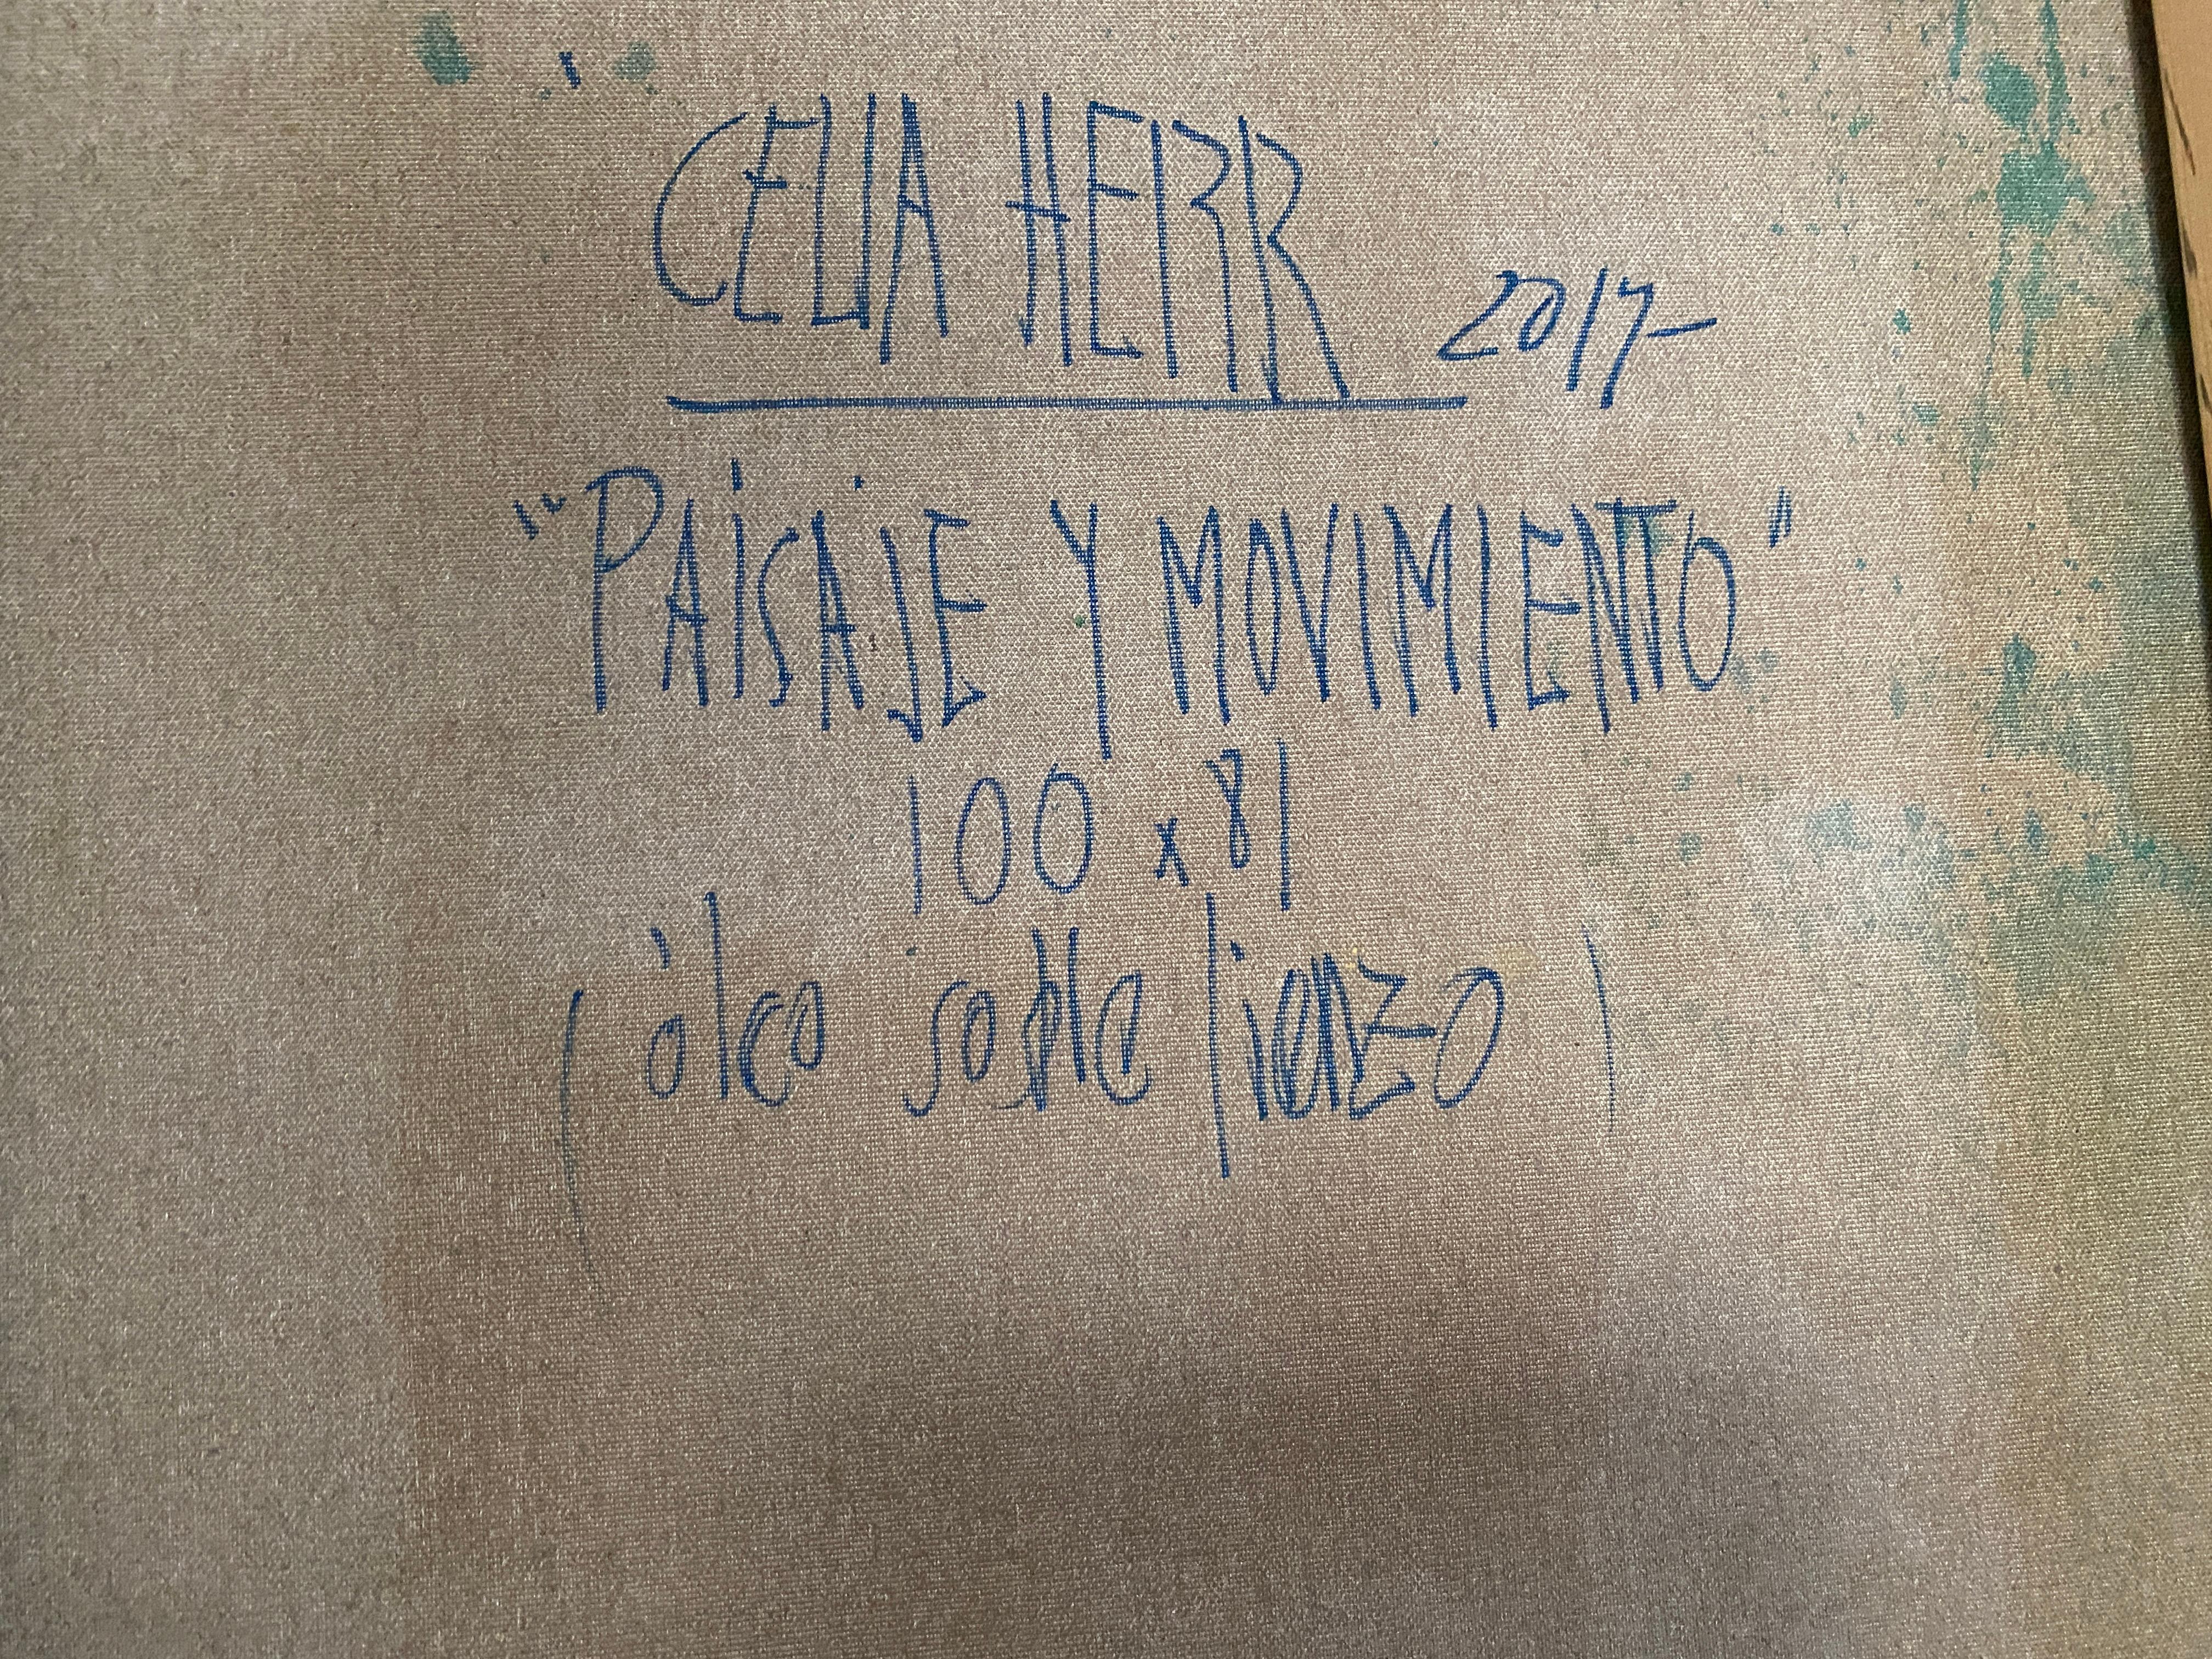 CELIA HERR 2017-
"PAISAJE Y MOVIMIENTO"
100 x 81
(óleo sobre lienzo)